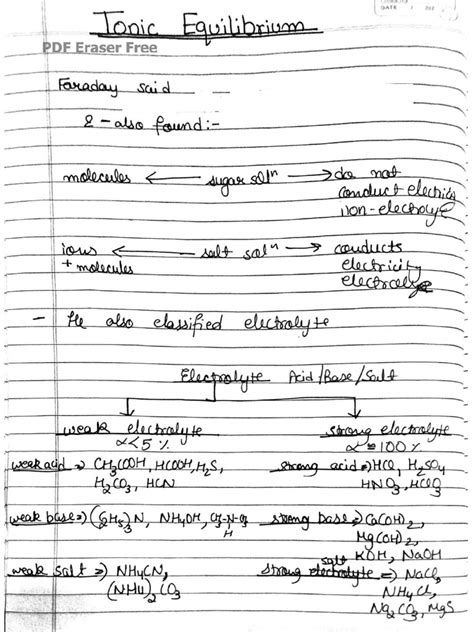 DATE
Ionic Equilibrium
PDF Eraser Free
Faraday said
& - also found:-
molecules ← sugar solⁿ → do not
conduct electricity
non-electrolyte
ions ← salt solⁿ → conducts
+ molecules electricity
- He also classified electrolyte
Electrolyte Acid/Base/Salt
weak electrolyte strong electrolyte
α<5 % α≈100 %
weak acid ⇒ CH₃COOH, HCOOH, H₂S, strong acid ⇒ HCl, H₂SO₄
H₂CO₃, HCN HNO₃, HClO₃
weak base ⇒ (C₂H₅)₃N, NH₄OH, strong base ⇒ Ca(OH)₂,
H Mg(OH)₂,
KOH, NaOH
weak salt ⇒ NH₄CN, strong salt ⇒ NaCl,
(NH₄)₂CO₃ NH₄Cl,
Na₂CO₃, MgS